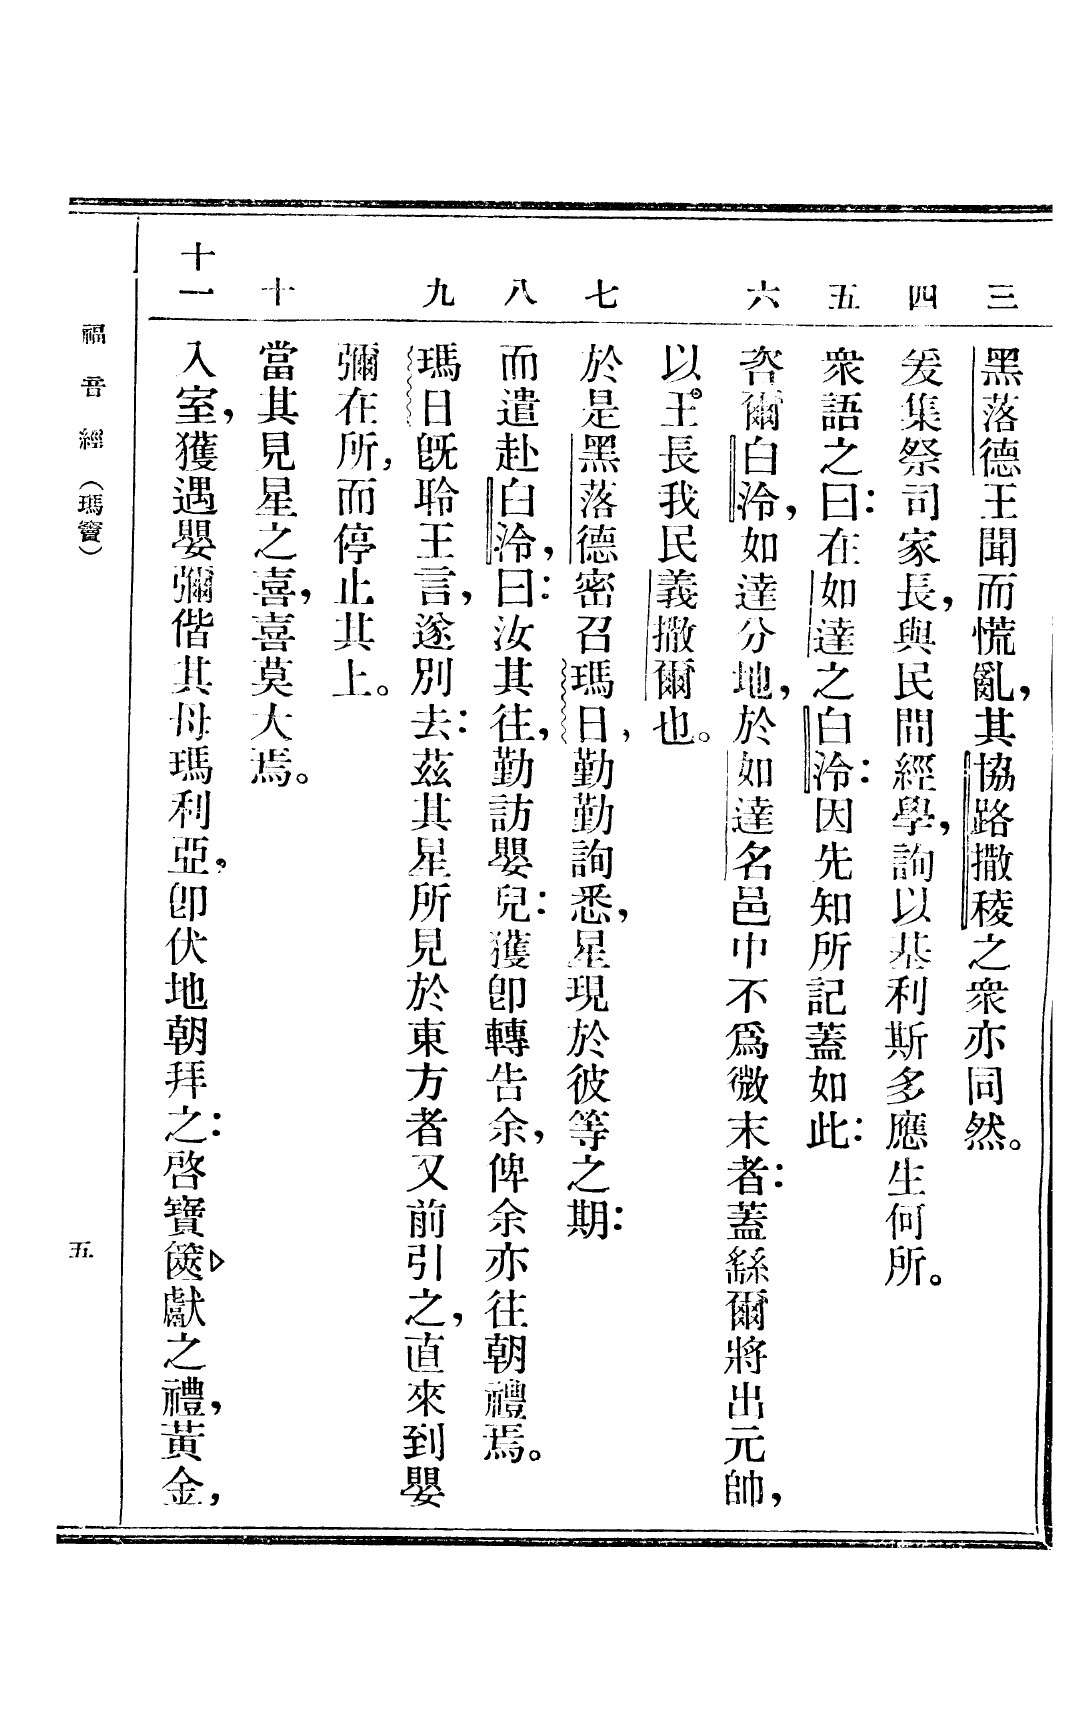 三 黑落德王聞而慌亂，其協路撒稜之衆亦同然。
四 爰集祭司家長，與民間經學，詢以基利斯多應生何所。
五 衆語之曰：在如達之白冷：因先知所記蓋如此：
六 咨爾白冷，如達分地，於如達名邑中不爲微末者：蓋繇爾將出元帥，
以王長我民義撒爾也。
七 於是黑落德密召瑪日，勤勤詢悉，星現於彼等之期：
八 而遣赴白冷，曰：汝其往，勤訪嬰兒：獲卽轉告余，俾余亦往朝禮焉。
九 瑪日旣聆王言，遂別去：茲其星所見於東方者又前引之，直來到嬰
彌在所，而停止其上。
十 當其見星之喜，喜莫大焉。
十一 入室，獲遇嬰彌偕其母瑪利亞，卽伏地朝拜之：啓寶篋，獻之禮，黃金，
福音經（瑪竇） 五